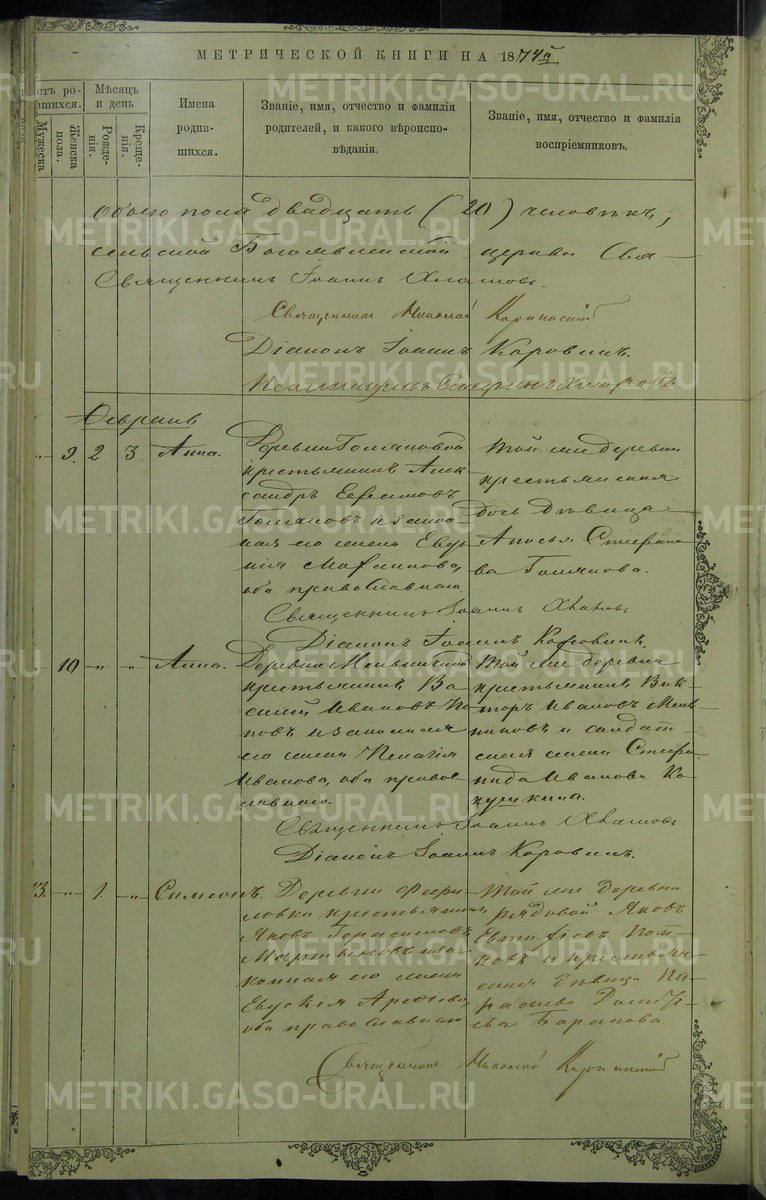 МЕТРИЧЕСКОЙ КНИГИ НА 1874й
Счетъ ро-
дившихся.
Мѣсяцъ
и день
Мужеска
Женска
пола.
Рожде-
нія.
Креще-
нія.
Имена
родив-
шихся.
Званіе, имя, отчество и фамилія
родителей, и какого вѣроиспо-
вѣданія.
Званіе, имя, отчество и фамилія
воспріемниковъ.
обоего пола двадцать (20) человѣкъ;
сельской Богоявленской церкви Свя-
Священникъ Іоаннъ Хламовъ.
Священникъ Николай
Діаконъ Іоаннъ Коровинъ.
Псаломщикъ
Февраль
9. 2 3. Анна.
Деревни Голяновой
крестьянинъ Алек-
сандръ Ефимовъ
Голяновъ и закон-
ная его жена Евдо-
кія
оба православнаго.
Той же деревни
крестьянская
дочь дѣвица
Анисья Стефано-
ва Голянова.
Священникъ Іоаннъ Хламовъ
Діаконъ Іоаннъ Коровинъ.
10 -„- „ Анна.
Деревни
крестьянинъ Ва-
силій Ивановъ По-
повъ и законная
его жена Пелагія
Иванова, оба право-
славнаго.
Той же деревни
крестьянинъ Вик-
торъ Ивановъ
и солдат-
ская жена Стефа-
нида Иванова Ко-
кушкина.
Священникъ Іоаннъ Хламовъ
Діаконъ Іоаннъ Коровинъ.
13. -„- 1. -„- Симеонъ.
Деревни
крестьянинъ
Яковъ Герасимовъ
Мартыновъ и за-
конная его жена
Евдокія
оба православнаго
Той же деревни
рядовой Яковъ
Евтифіевъ Поп-
ковъ и крестьян-
ская дѣвица Па-
расковья
Баранова
Священникъ Николай
METRIKI.GASO-URAL.RU